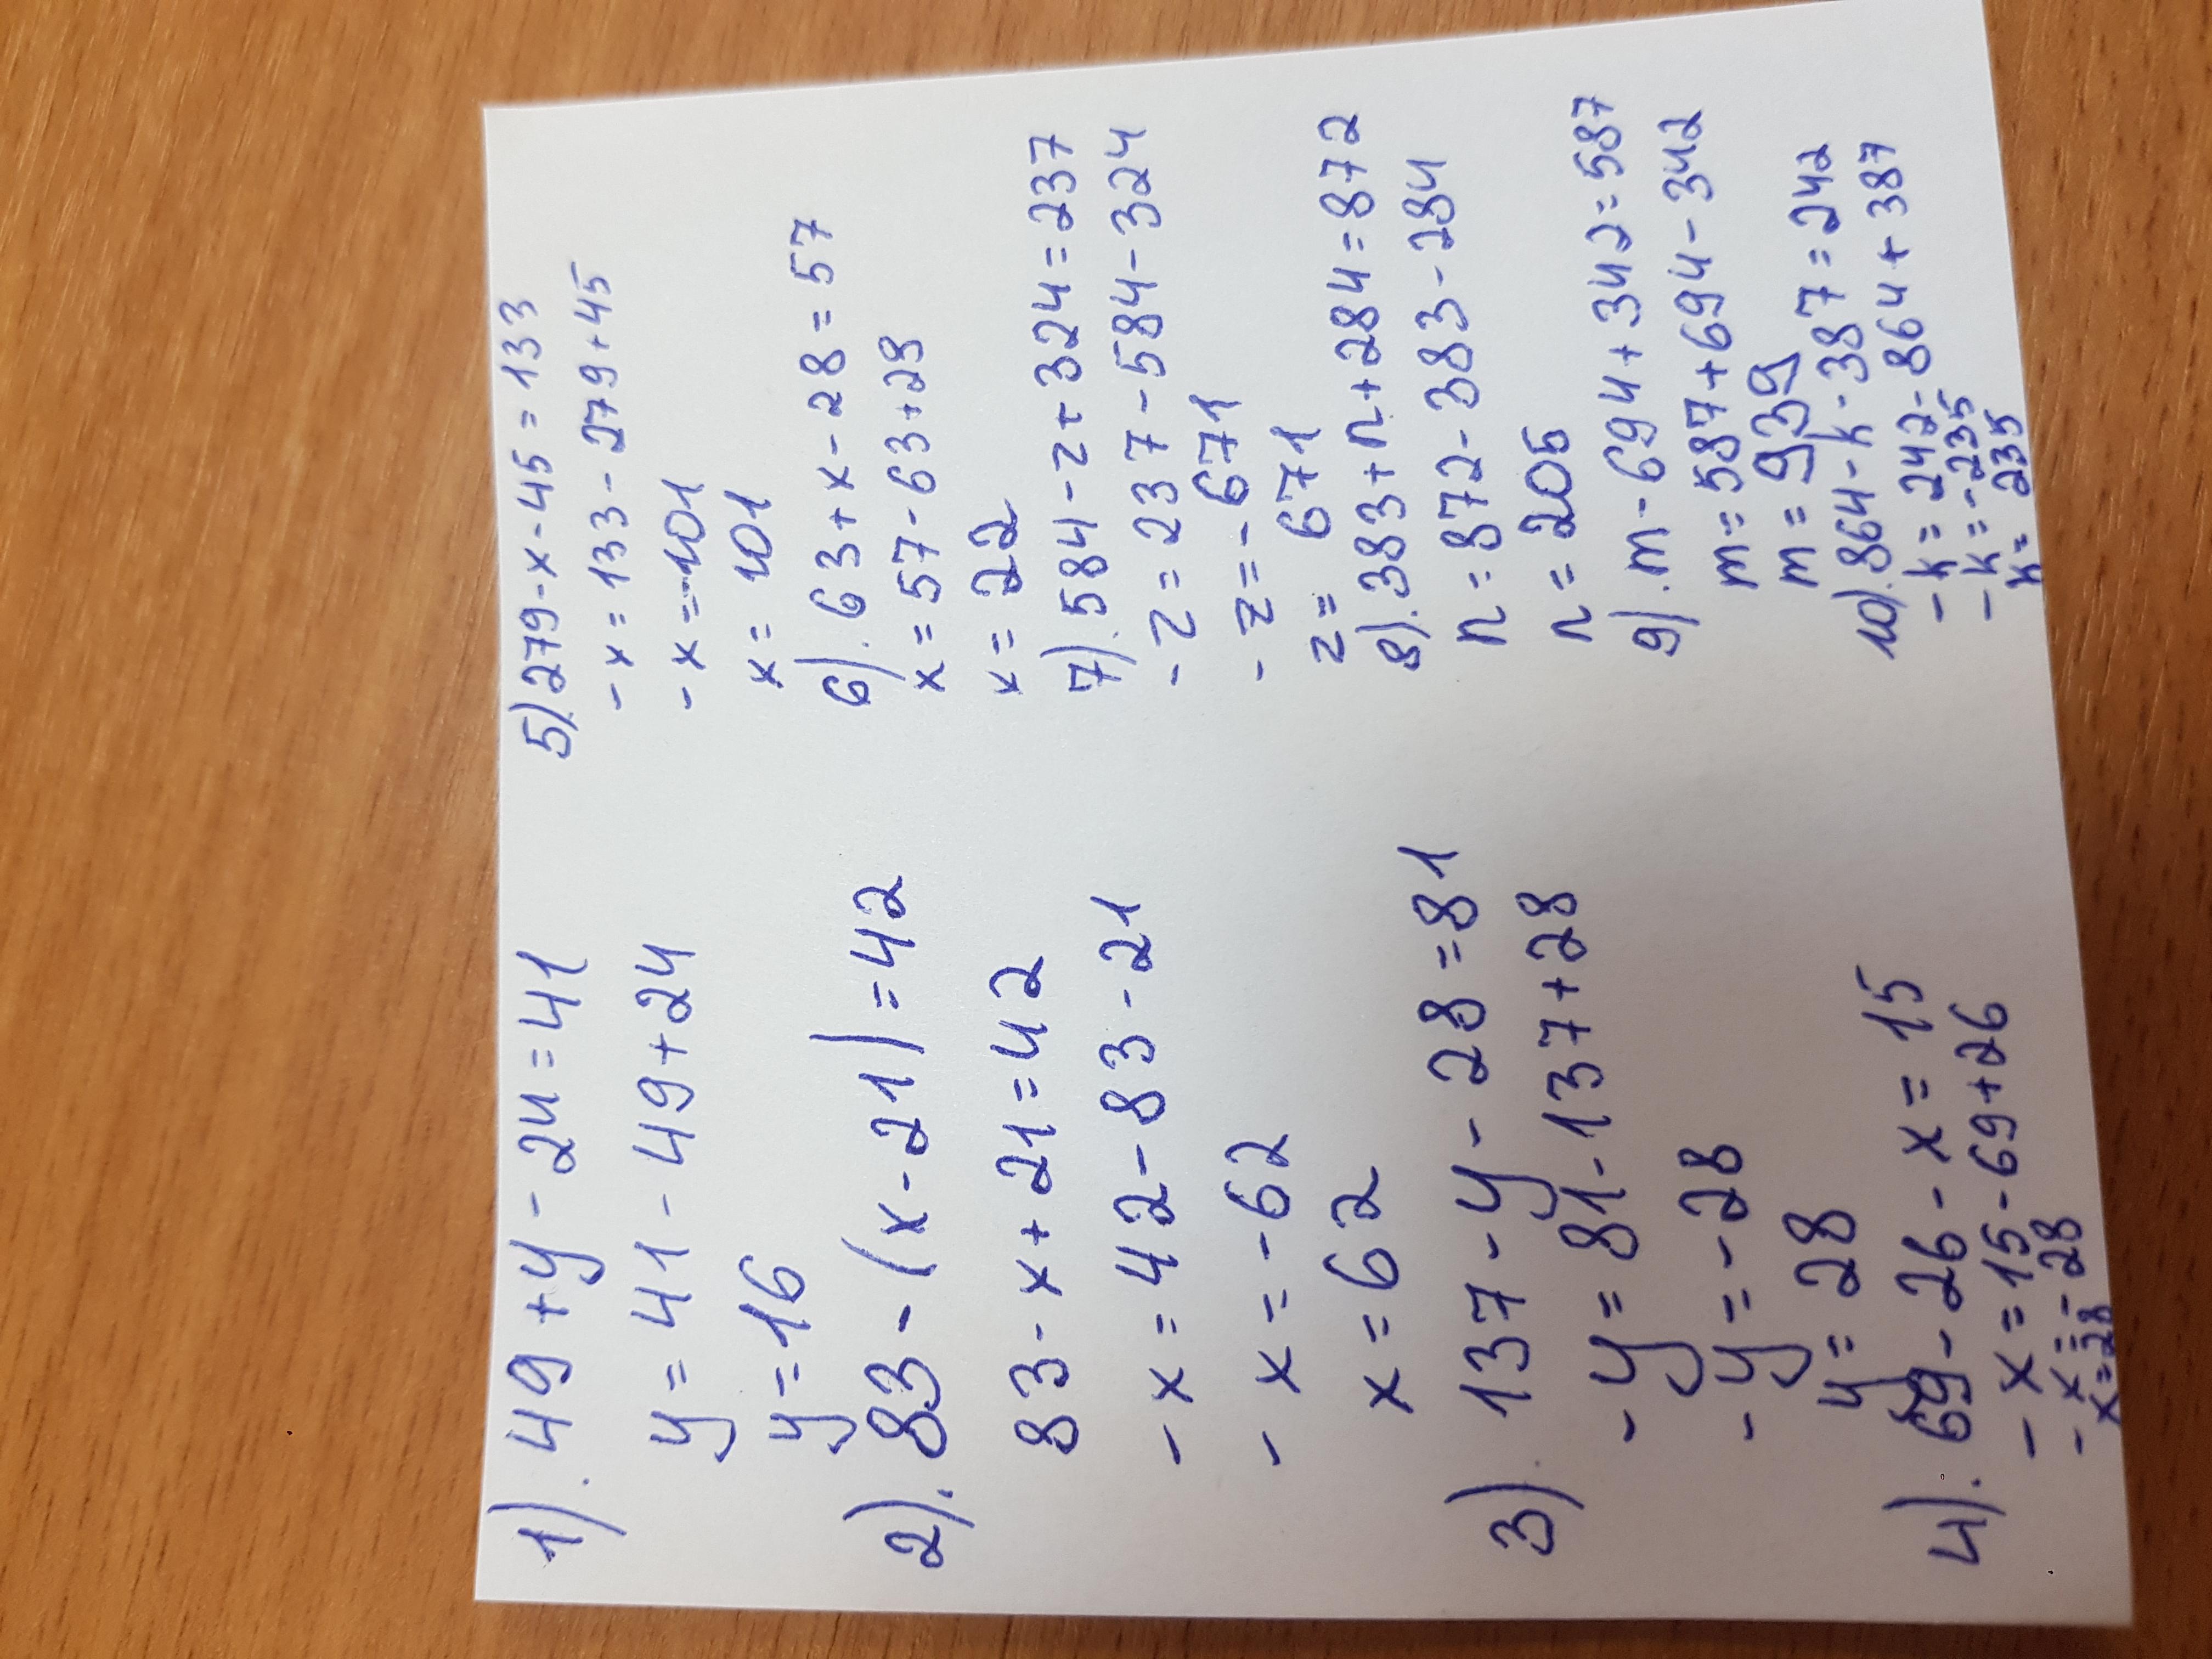 1). 49+y-24=41
y=41-49+24
y=16
2). 83-(x-21)=42
83-x+21=42
-x=42-83-21
-x=-62
x=62
3). 137-y-28=81
-y=81-137+28
-y=-28
y=28
4). 69-26-x=15
-x=15-69+26
-x=-28
x=28
5). 279-x-45=133
-x=133-279+45
-x=-101
x=101
6). 63+x-28=57
x=57-63+28
x=22
7). 584-z+324=237
-z=237-584-324
-z=-671
z=671
8). 383+n+284=872
n=872-383-284
n=205
9). m-694+342=587
m=587+694-342
m=939
10). 864-k-387=242
-k=242-864+387
-k=-235
k=235